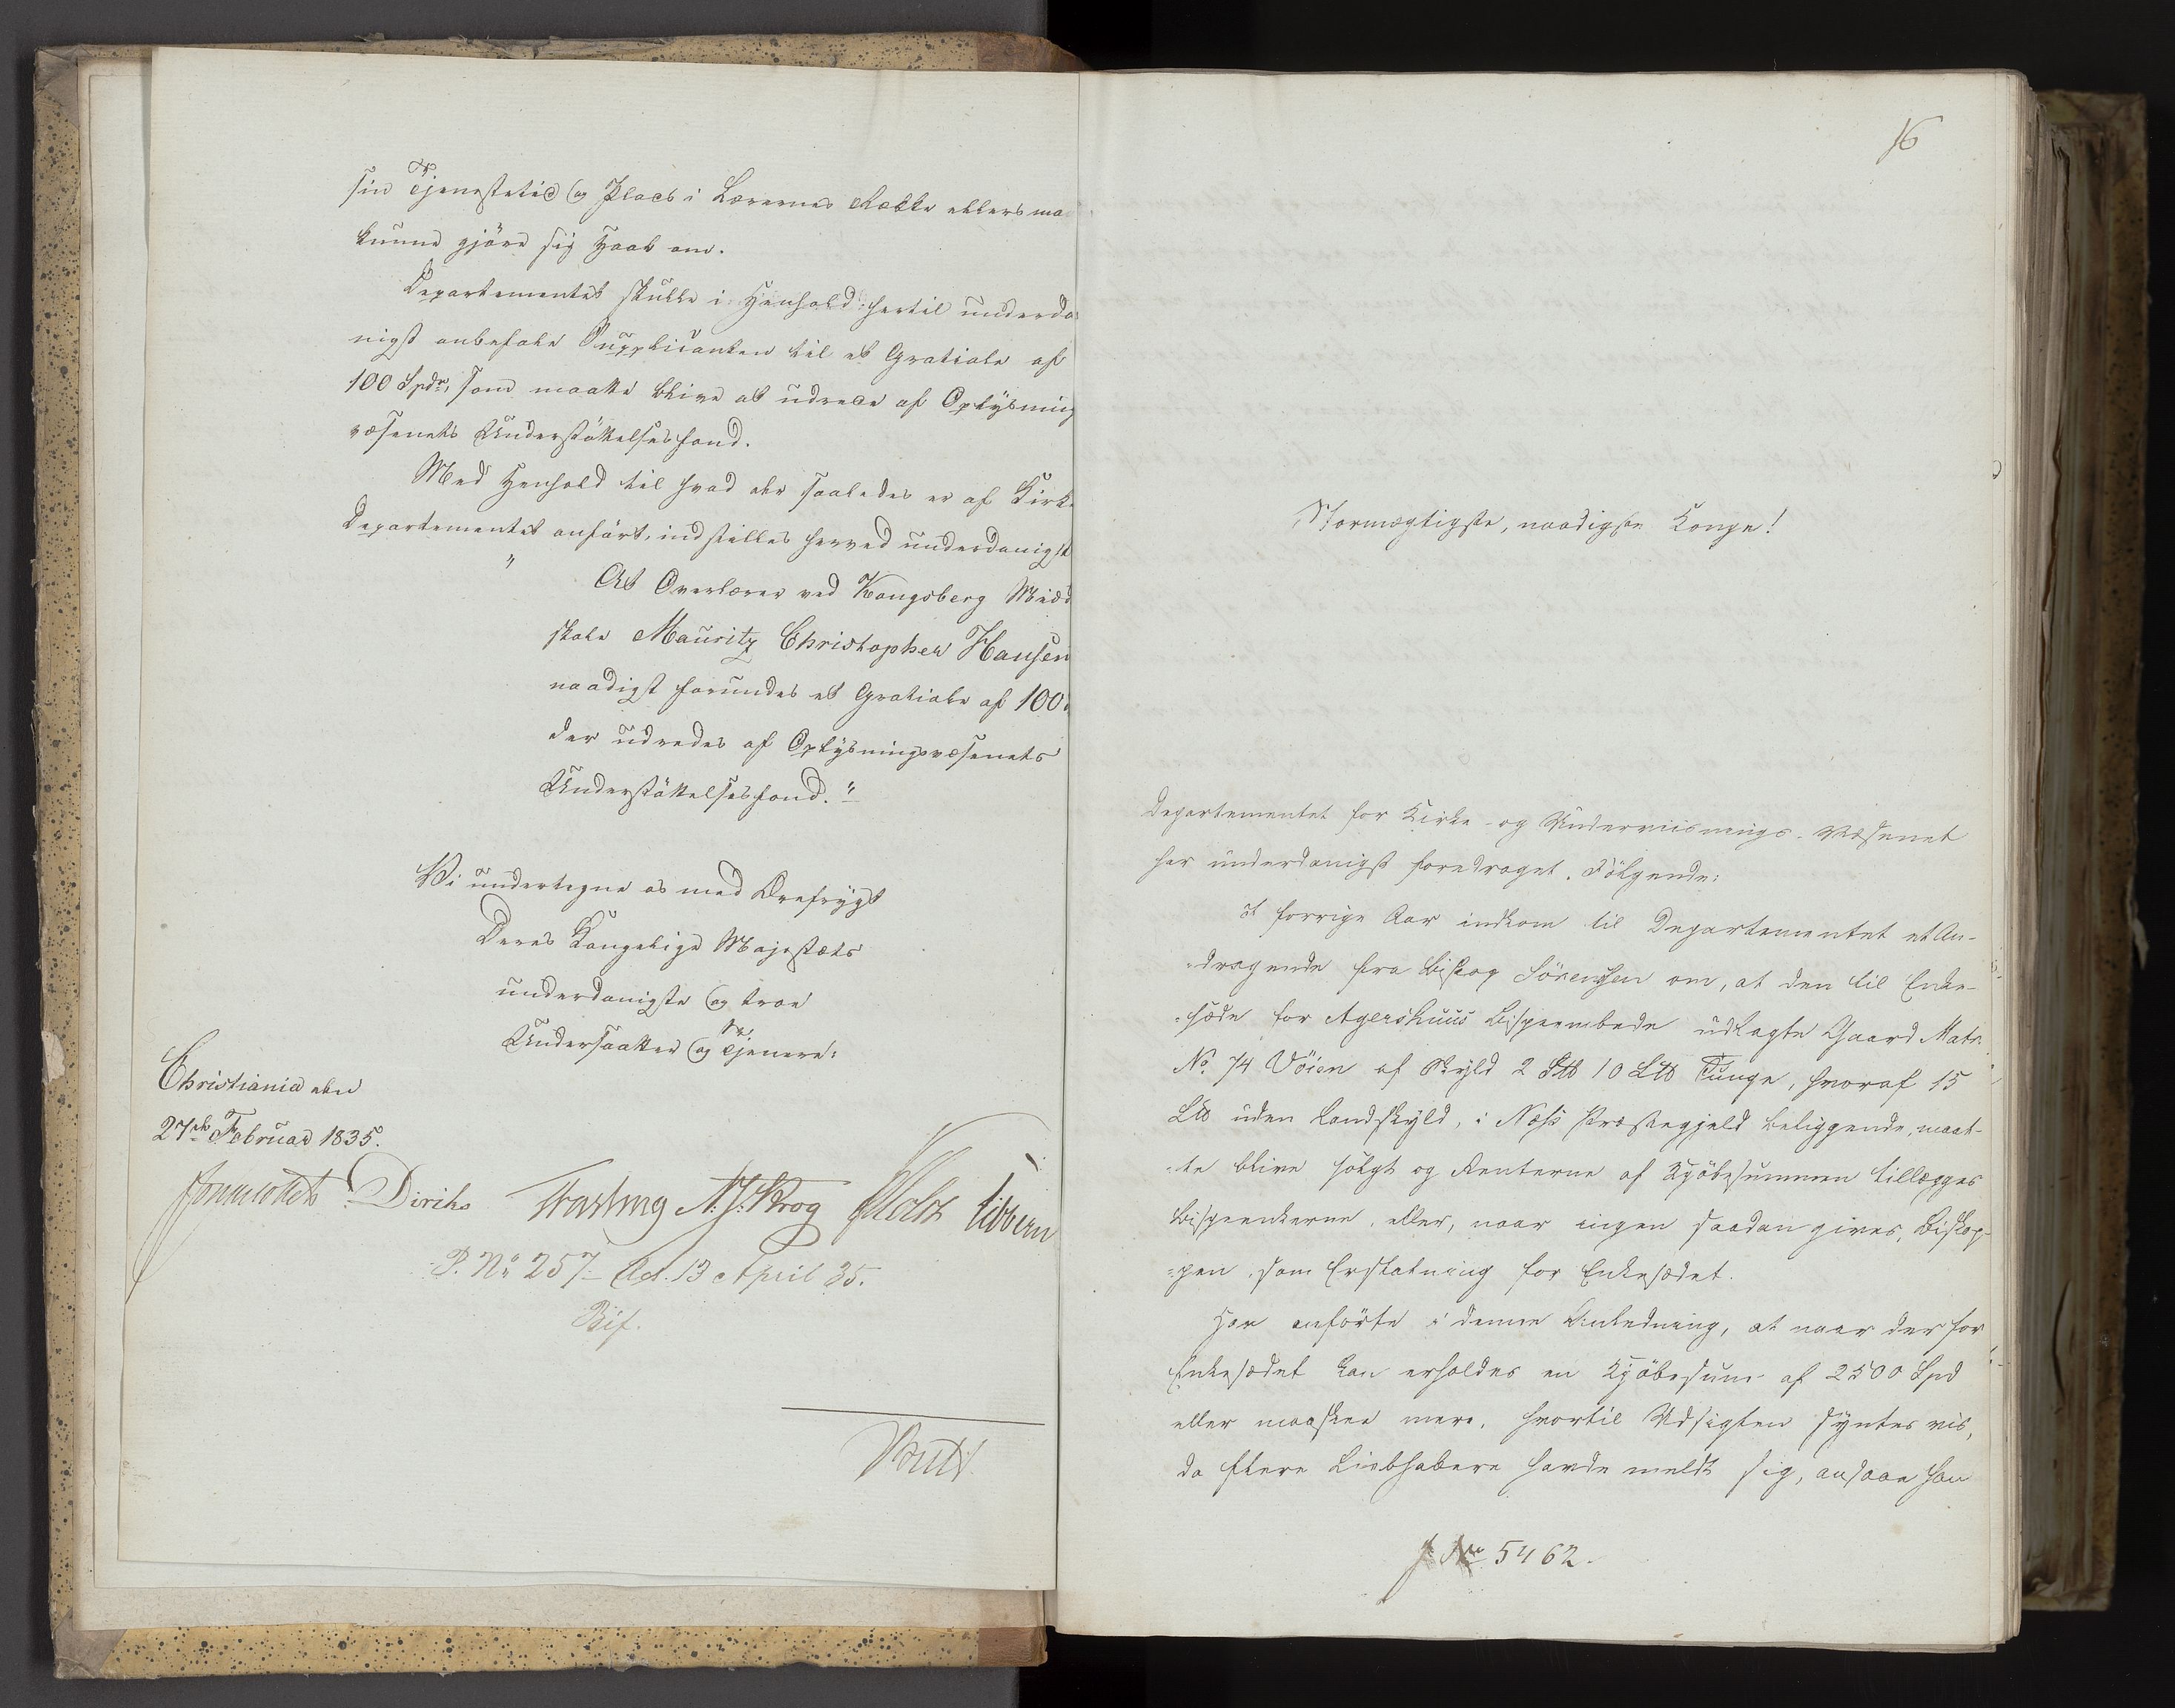 sin Tjenestetid og Plads i Lærernes Række ellers ma
kunne gjøre sig Haab om.
Departementet skulle i Henhold hertil underda-
nigst anbefale Supplicanten til et Gratiale af
100 Spdr, som maatte blive at udrede af Oplysnings
væsenets Understøttelsesfond.
Med Henhold til hvad der saaledes er af Kirke
Departementet anført, indstilles herved underdanigst
" At Overlærer ved Kongsberg Midd
skole Mauritz Christopher Hansen
naadigst forundes et Gratiale af 100
der udredes af Oplysningsvæsenets
Understøttelsesfond."
Vi undertegne os med Ærefrygt
Deres Kongelige Majestæts
underdanigste og troe
Undersaatter og Tjenere:
Christiania den
27de Februar 1835.
Diriks Fasting N. J. Krog Holst Vibbern
P. No 257 Ad. 13 April 35.
Bif.
16
Stormægtigste, naadigste Konge!
Departementet for Kirke- og Underviisnings-Væsenet
har underdanigst foredraget Følgende:
"I forrige Aar indkom til Departementet et An-
dragende fra Biskop Sörenssen om, at den til Enke-
sæde for Agershuus Bispeembede udlagte Gaard Matr.
No. 74 Vöien af Skyld 2 Sk℔ 10 L℔ Tunge, hvoraf 15
L℔ uden Landskyld, i Næss Præstegjeld beliggende, maat-
te blive solgt og Renterne af Kjøbesummen tillægges
Bispeenkerne, eller, naar ingen saadan gives, Biskop-
pen, som Erstatning for Enkesædet.
Han anførte i denne Anledning, at naar der for
Enkesædet kan erholdes en Kjøbesum af 2500 Spd
eller maaskee mere, hvortil Udsigten syntes vis,
da flere Liebhabere havde meldt sig, ansaae han
J. No 5462.